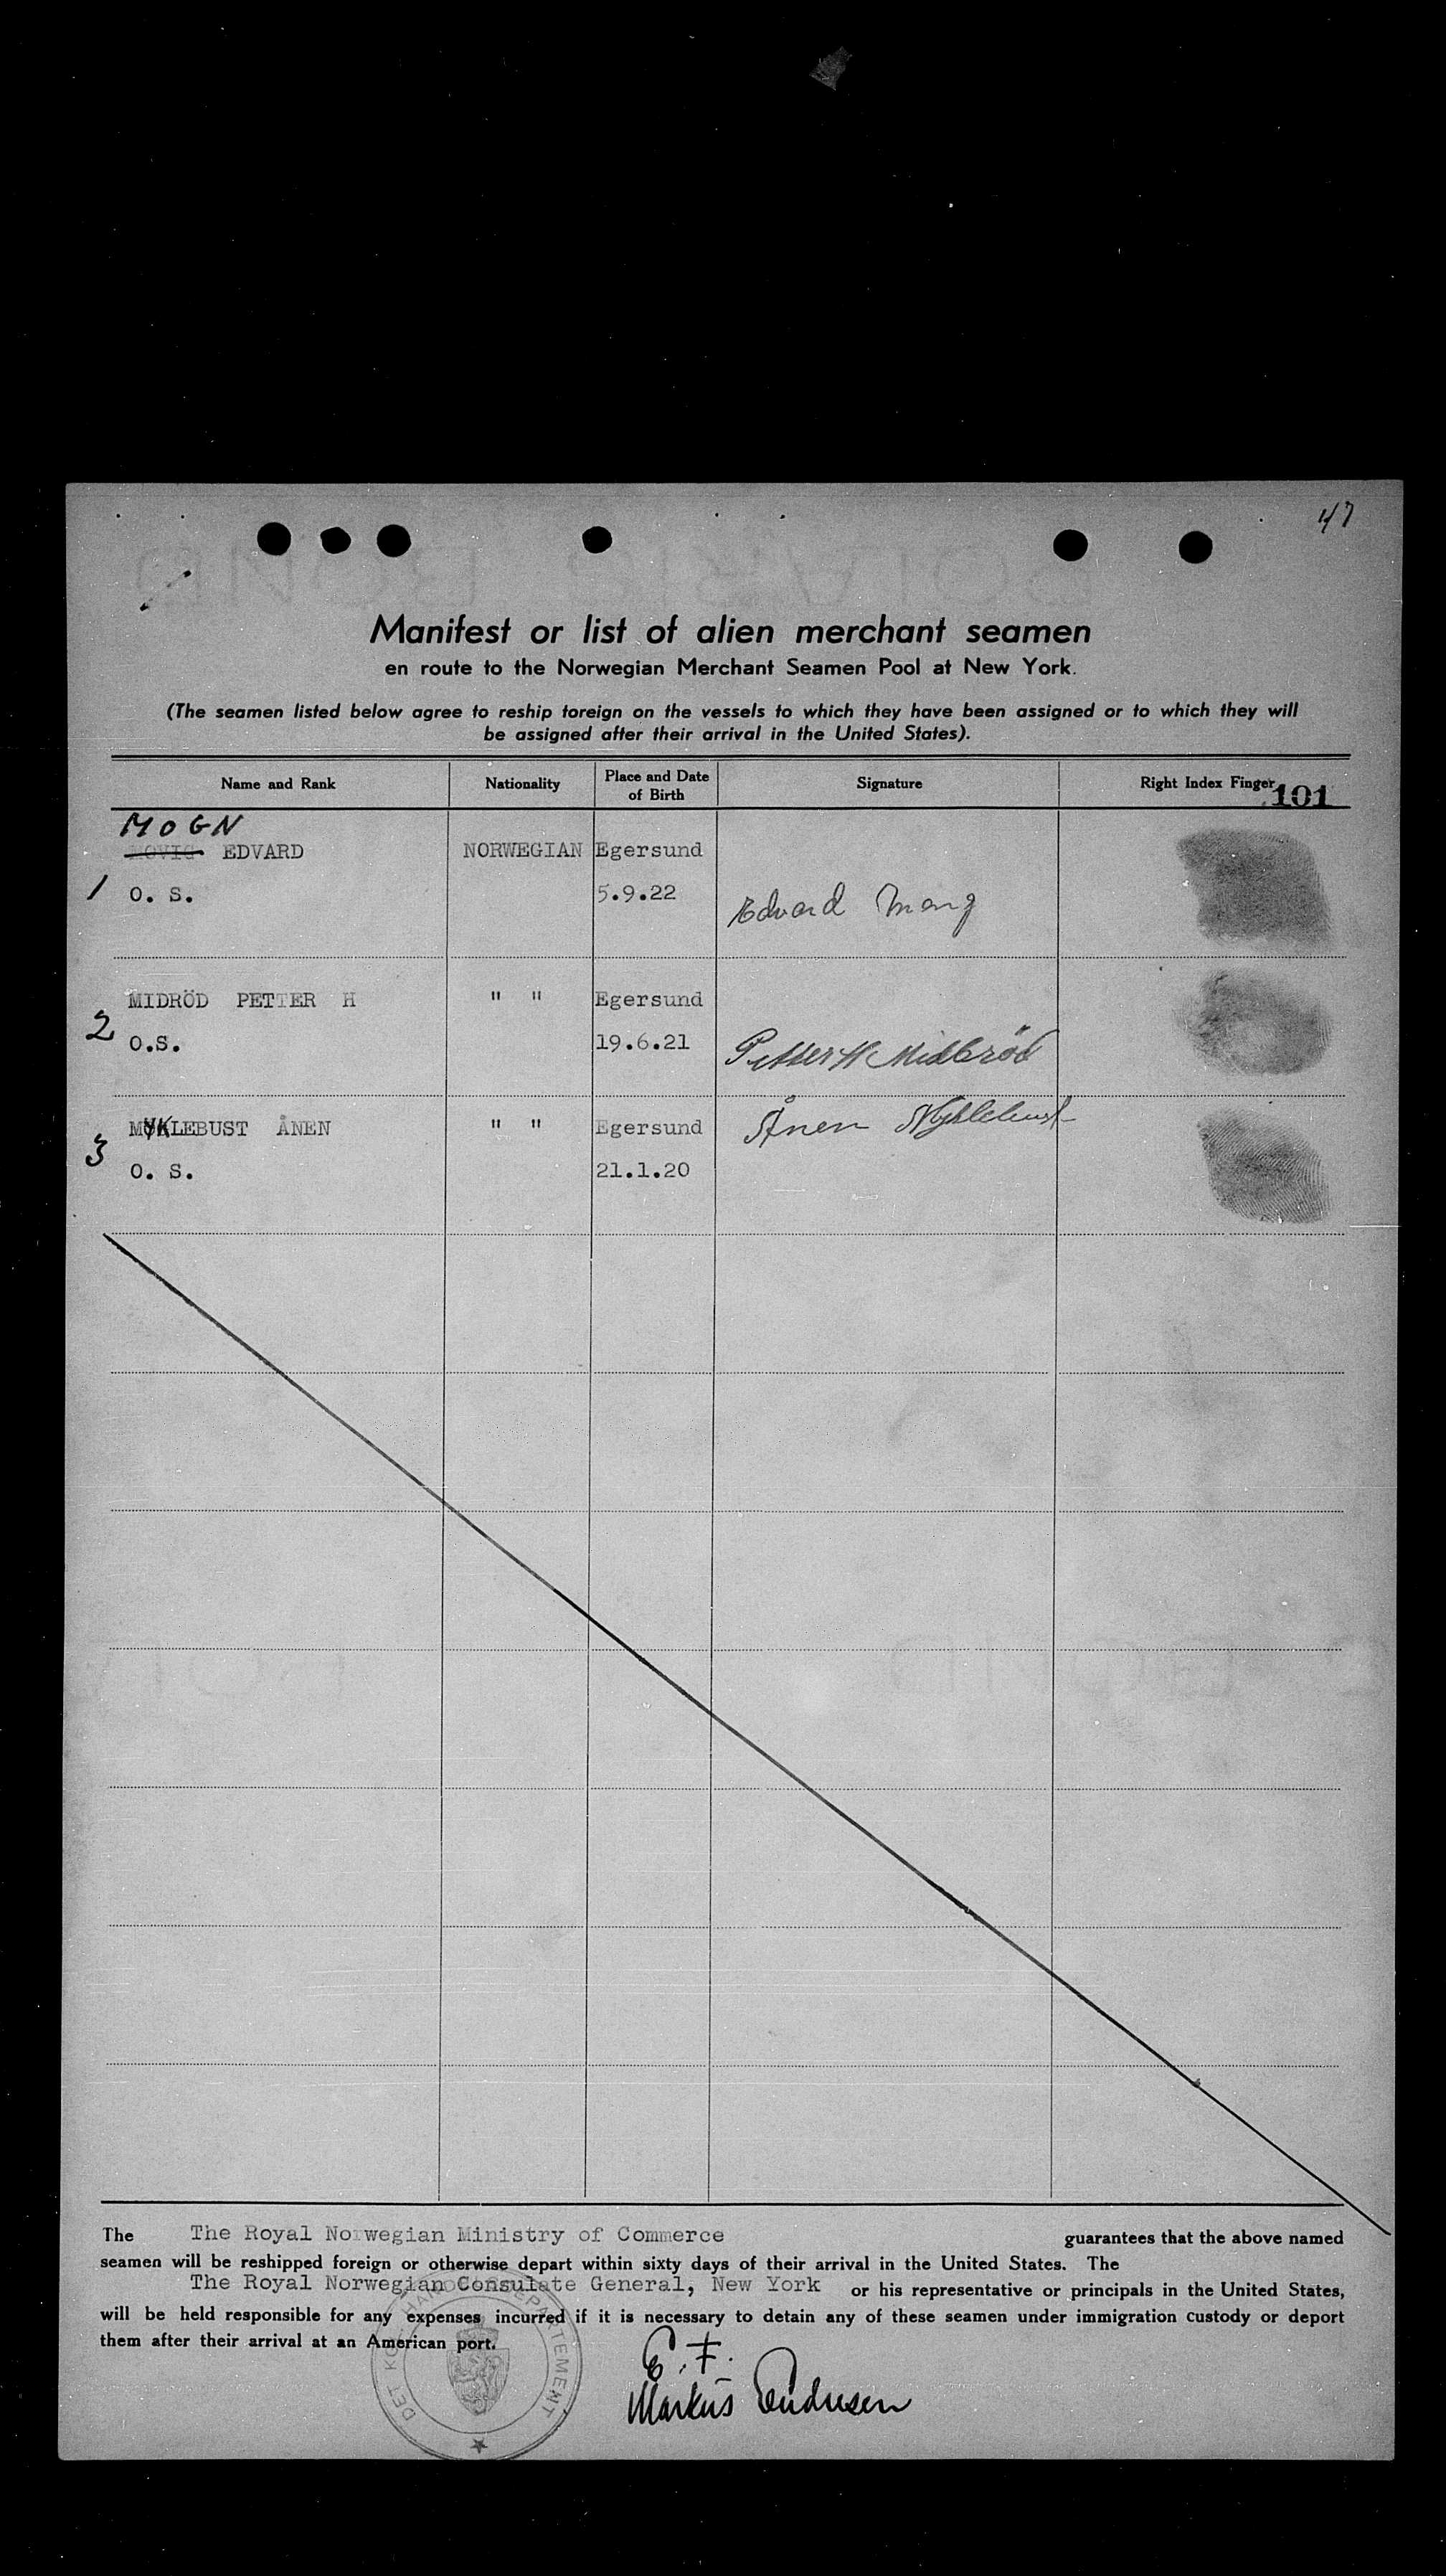 47
Manifest or list of alien merchant seamen
en route to the Norwegian Merchant Seamen Pool at New York.
(The seamen listed below agree to reship foreign on the vessels to which they have been assigned or to which they will
be assigned after their arrival in the United States).
Name and Rank Nationality Place and Date of Birth Signature Right Index Finger 101
MOGN
MOVIG EDVARD NORWEGIAN Egersund
1 O. S. 5.9.22 Edvard
MIDRÖD PETTER H " " Egersund
2 O.S. 19.6.21 Petter H Midbröd
MYKLEBUST ÅNEN " " Egersund Ånen Myklebust
3 O. S. 21.1.20
The The Royal Norwegian Ministry of Commerce guarantees that the above named
seamen will be reshipped foreign or otherwise depart within sixty days of their arrival in the United States. The
The Royal Norwegian Consulate General, New York or his representative or principals in the United States,
will be held responsible for any expenses incurred if it is necessary to detain any of these seamen under immigration custody or deport
them after their arrival at an American port.
DET KGL. HANDELSDEPARTEMENT
E. F.
Markus